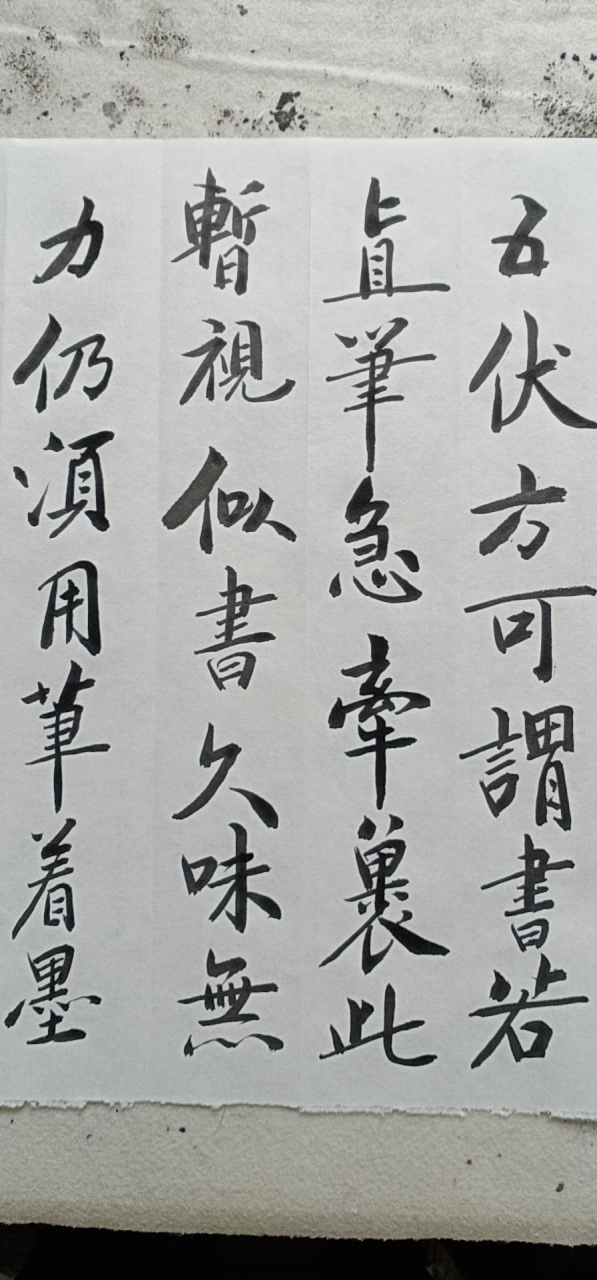 五伏方可謂書若
直筆急牽裹此
暫視似書久味無
力仍須用筆着墨